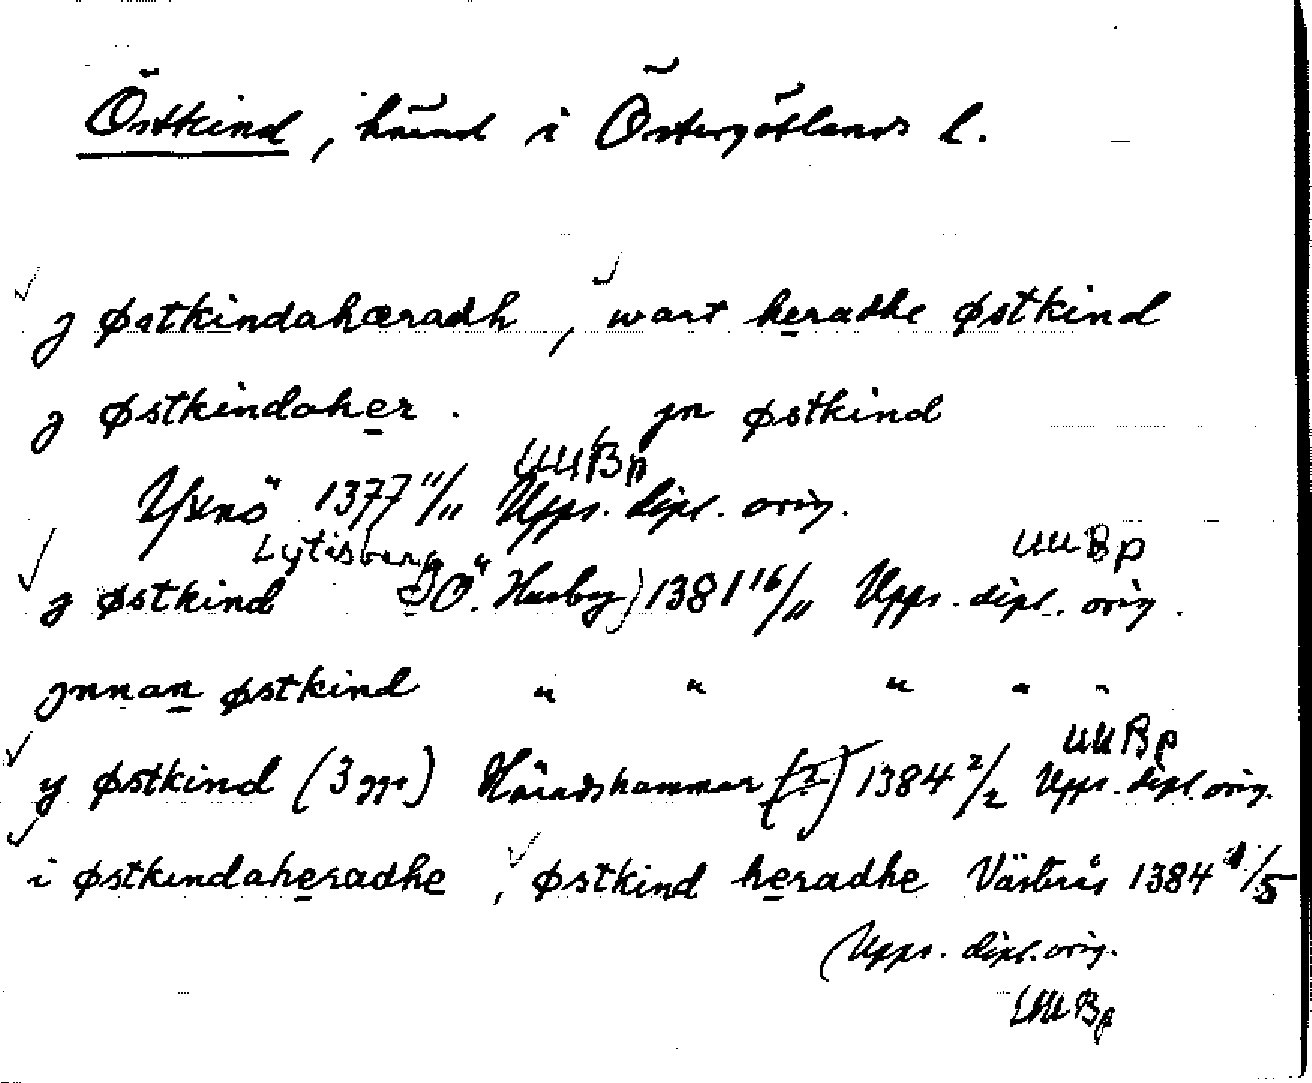 Östkind, härad i Östergötlands l.
j østkindahæradh, wart heradhe østkind
j østkindaher. jn østkind
UUBp
Yxnö 1377 11/11 Upps. dipl. orig.
Lytisberg UUBp
j østkind (Ö. Husby) 1381 16/11 Upps. dipl. orig.
jnnan østkind " " " " "
UUBp
y østkind (3 ggr) Häradshammar (?) 1384 2/2 Upps. dipl. orig.
i østkindaheradhe, østkind heradhe Västerås 1384 /5
(Upps. dipl. orig.
UUBp